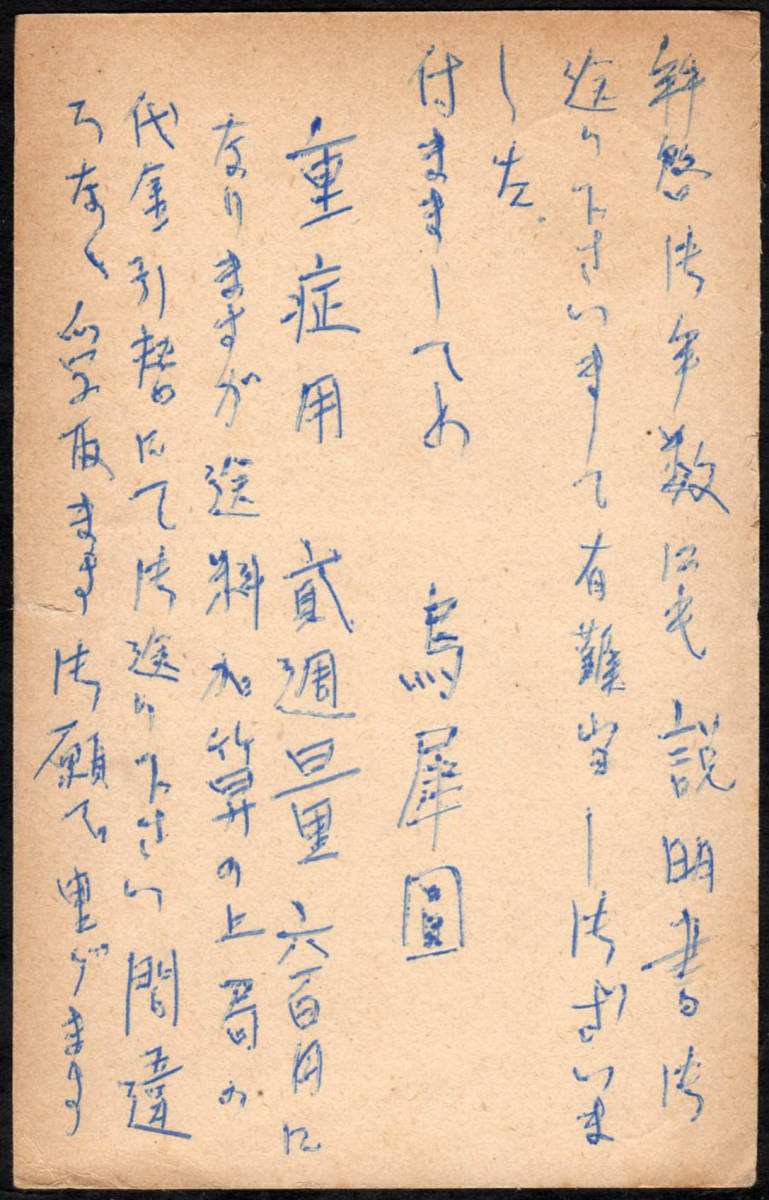 拝啓御手数にも説明書御
送り下さいまして有難当し御ざいま
した
付まましてわ　烏犀圓
重症用　貳週量六百円に
なりますが送料加算の上局の
代金引替にて御送り下さい間違
なく受取ます御願申げます